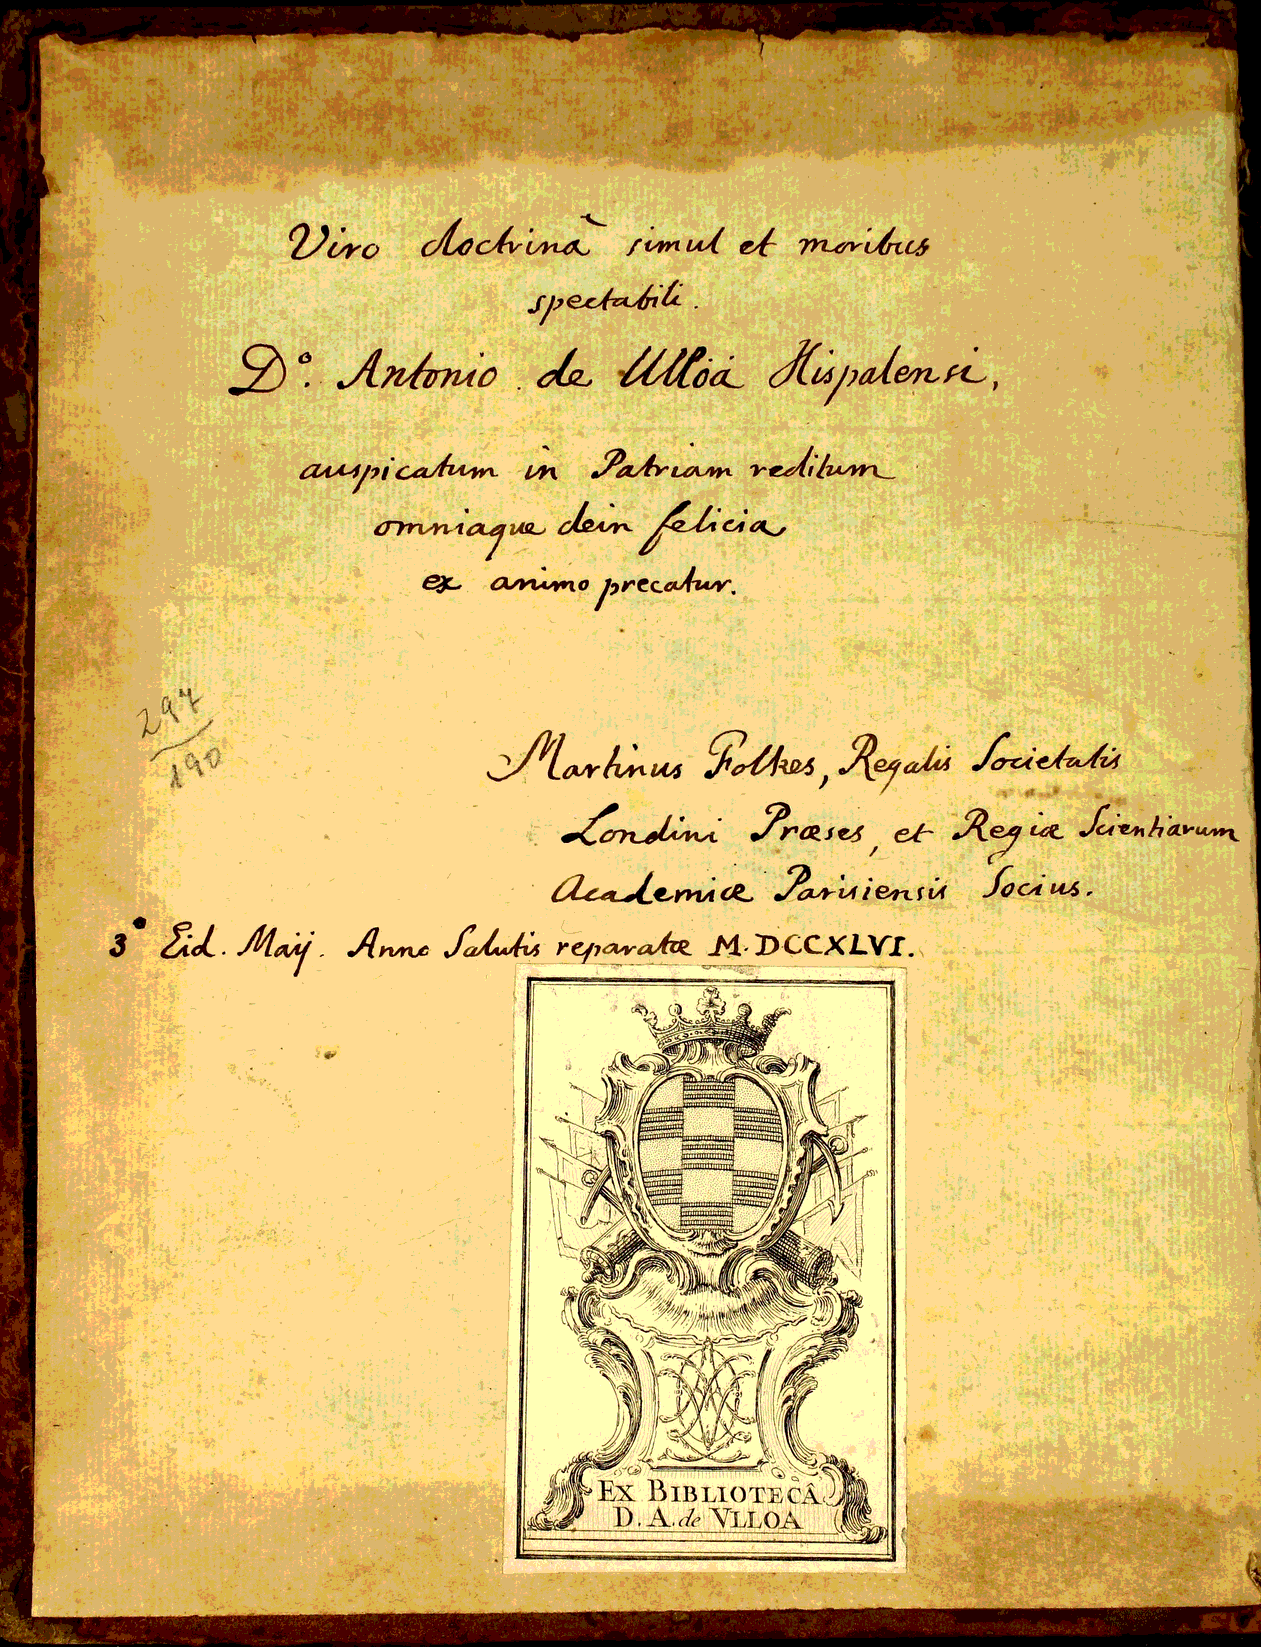 Viro doctrinâ simul et moribus
spectabili.
D.º Antonio de Ulloa Hispalensi,
auspicatum in Patriam reditum
omniaque dein felicia
ex animo precatur.
297
190
Martinus Folkes, Regalis Societatis
Londini Præses, et Regiæ Scientiarum
Academiæ Parisiensis Socius.
3º Eid. Maij. Anno Salutis reparatæ M.DCCXLVI.
EX BIBLIOTECÂ
D. A. de VLLOA